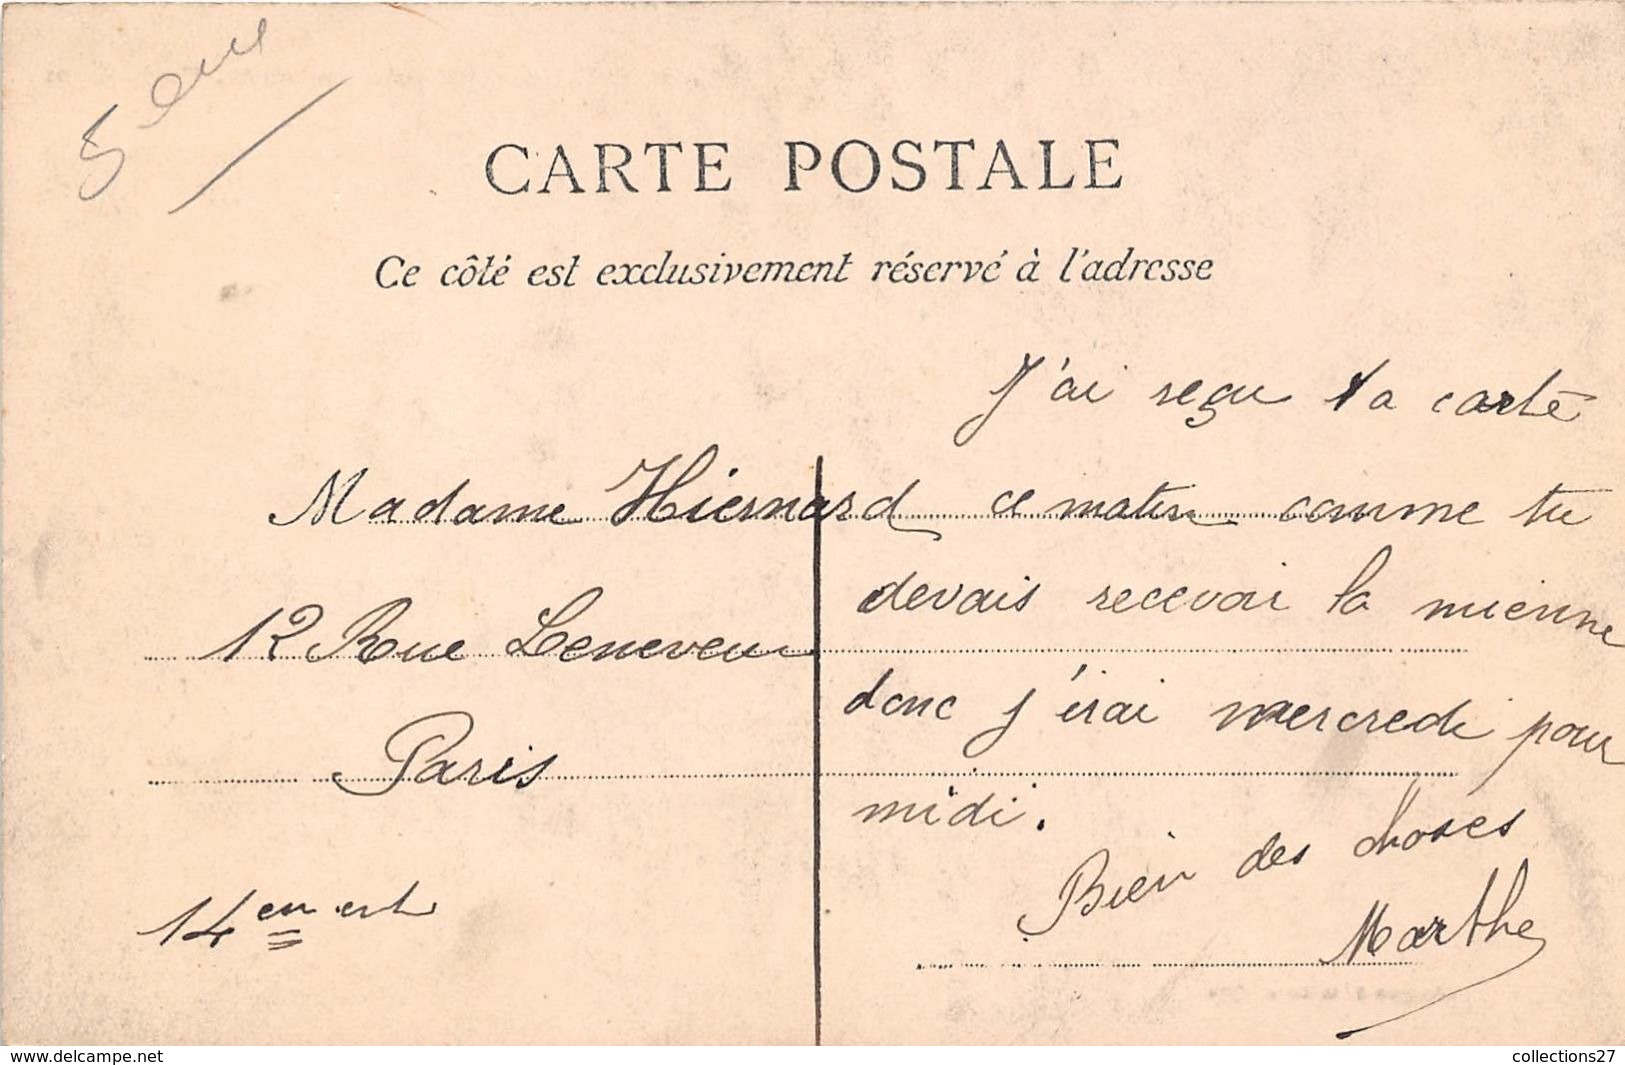 CARTE POSTALE
Ce côté est exclusivement réservé à l'adresse
Madame Hiernard
12 Rue Leneveu
Paris
14
J'ai reçu ta carte
ce matin comme tu
devais recevoir la mienne
donc j'irai mercredi pour
midi.
Bien des choses
Marthe
www.delcampe.net
collections27